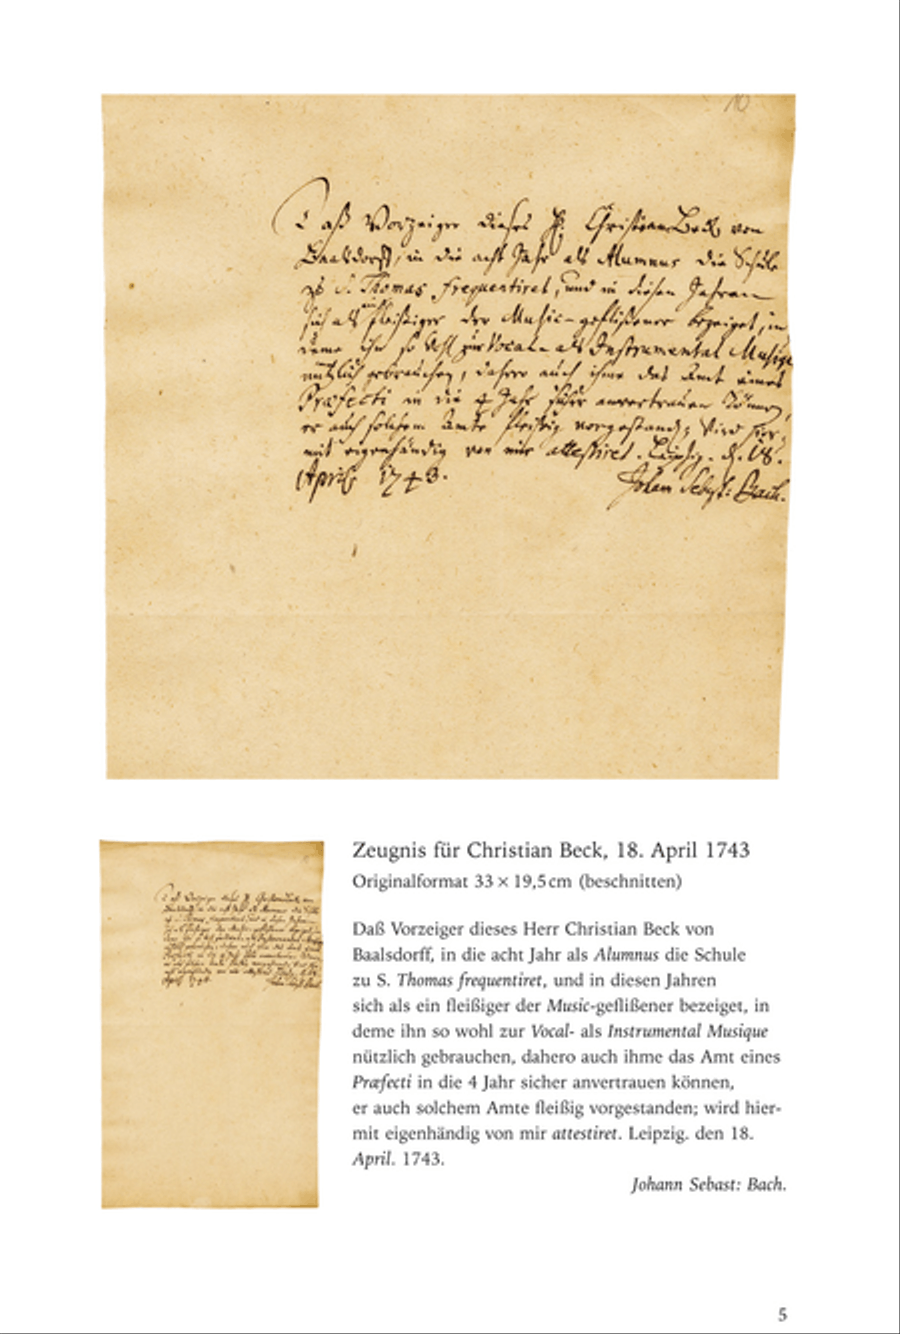 10
Daß Vorzeiger dieses H. Christian Beck von
Baalsdorff, in die acht Jahr als Alumnus die Schule
zu S. Thomas frequentiret, und in diesen Jahren
sich als ein fleißiger der Music-geflißener bezeiget, in
deme ihn so wohl zur Vocal- als Instrumental Musique
nützlich gebrauchen, dahero auch ihme das Amt eines
Præfecti in die 4 Jahr sicher anvertrauen können,
er auch solchem Amte fleißig vorgestanden; wird hier-
mit eigenhändig von mir attestiret. Leipzig. d. 18.
April. 1743.
Johan Sebast: Bach.
Zeugnis für Christian Beck, 18. April 1743
Originalformat 33 × 19,5 cm (beschnitten)
Daß Vorzeiger dieses Herr Christian Beck von
Baalsdorff, in die acht Jahr als Alumnus die Schule
zu S. Thomas frequentiret, und in diesen Jahren
sich als ein fleißiger der Music-geflißener bezeiget, in
deme ihn so wohl zur Vocal- als Instrumental Musique
nützlich gebrauchen, dahero auch ihme das Amt eines
Præfecti in die 4 Jahr sicher anvertrauen können,
er auch solchem Amte fleißig vorgestanden; wird hier-
mit eigenhändig von mir attestiret. Leipzig. den 18.
April. 1743.
Johann Sebast: Bach.
5